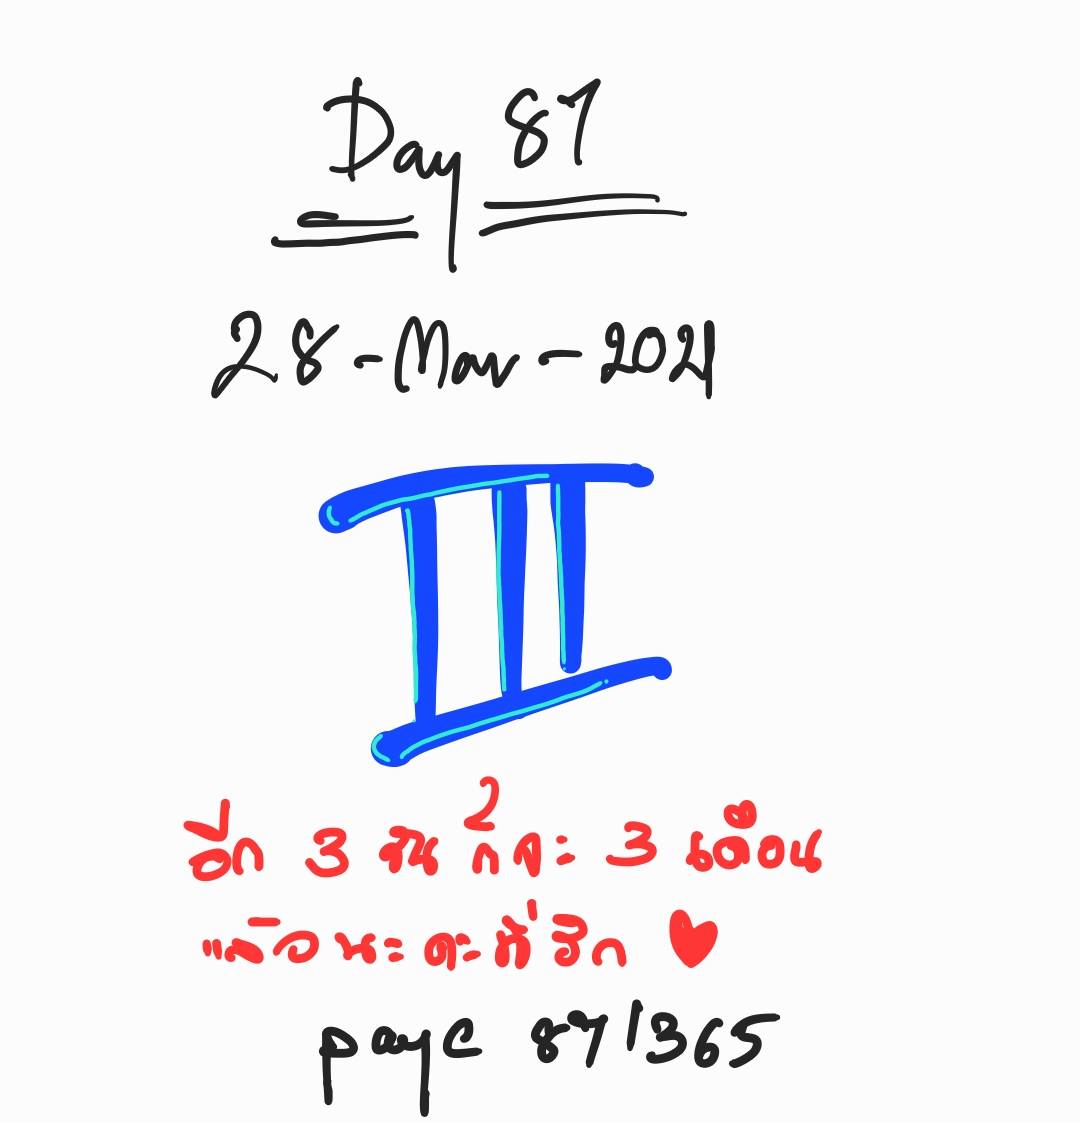 Day 87
28-Mar-2021
III
อีก 3 วันก็จะ 3 เดือน
แล้วนะคะที่รัก ♥
page 87/365